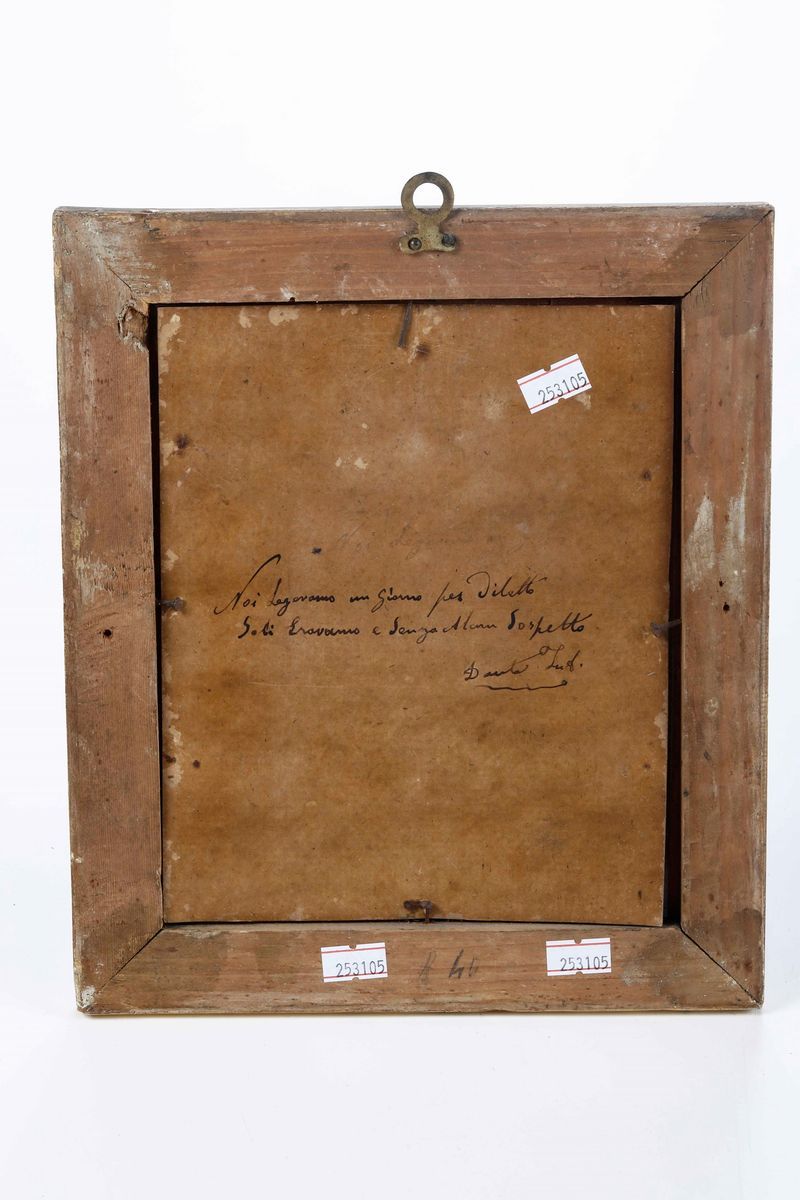 253105
Noi Legga
Noi Legavamo un Giorno per Diletto
Soli Eravamo e Senza Alcun Sospetto.
Dante Inf.
253105
253105